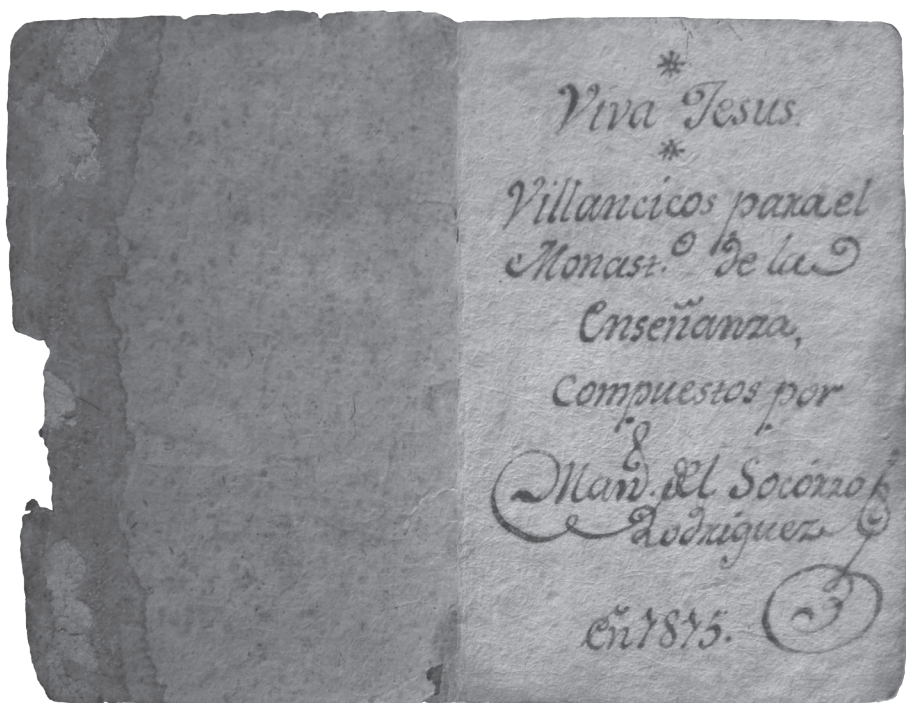 Viva Jesus.
Villancicos para el
Monast.º de la
Enseñanza,
Compuestos por
Man.l del Socórro
Rodriguez
En 1815.